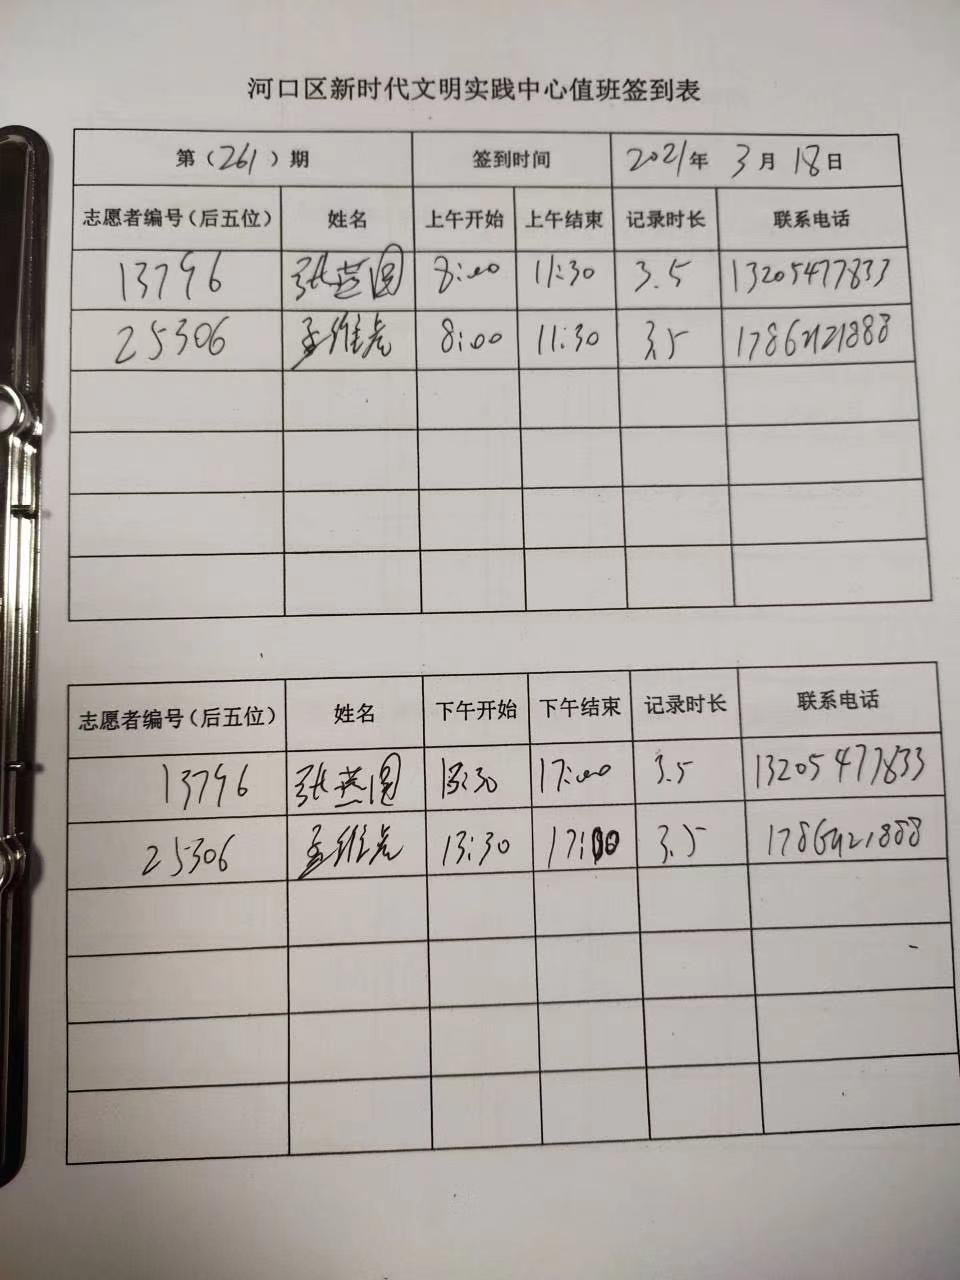 河口区新时代文明实践中心值班签到表
第（261）期 签到时间 2021年 3月 18日
志愿者编号（后五位） 姓名 上午开始 上午结束 记录时长 联系电话
13796 张燕圆 8:00 11:30 3.5 13205477833
25306 孟维虎 8:00 11:30 3.5
志愿者编号（后五位） 姓名 下午开始 下午结束 记录时长 联系电话
13796 张燕圆 13:30 17:00 3.5 13205477833
25306 孟维虎 13:30 17:00 3.5